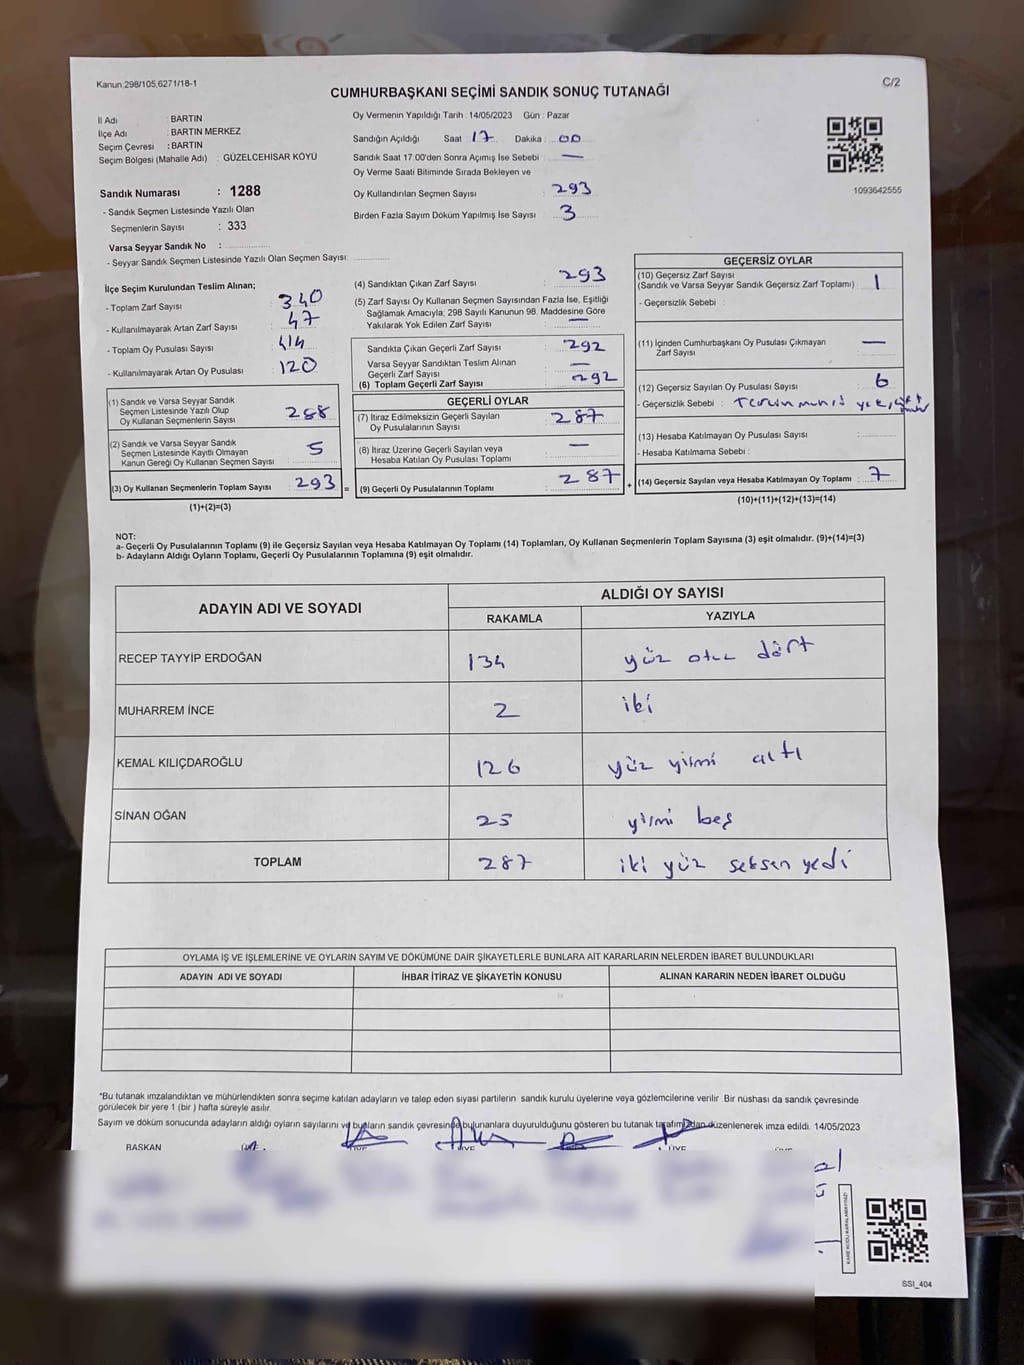 Kanun:298/105,6271/18-1
C/2
CUMHURBAŞKANI SEÇİMİ SANDIK SONUÇ TUTANAĞI
İl Adı : BARTIN
İlçe Adı : BARTIN MERKEZ
Seçim Çevresi : BARTIN
Seçim Bölgesi (Mahalle Adı) : GÜZELCEHİSAR KÖYÜ
Sandık Numarası : 1288
- Sandık Seçmen Listesinde Yazılı Olan
Seçmenlerin Sayısı : 333
Varsa Seyyar Sandık No :
- Seyyar Sandık Seçmen Listesinde Yazılı Olan Seçmen Sayısı:
Oy Vermenin Yapıldığı Tarih : 14/05/2023 Gün : Pazar
Sandığın Açıldığı Saat : 17 Dakika : 00
Sandık Saat 17.00'den Sonra Açımış İse Sebebi : —
Oy Verme Saati Bitiminde Sırada Bekleyen ve
Oy Kullandırılan Seçmen Sayısı : 293
Birden Fazla Sayım Döküm Yapılmış İse Sayısı : 3
1093642555
İlçe Seçim Kurulundan Teslim Alınan;
- Toplam Zarf Sayısı : 340
- Kullanılmayarak Artan Zarf Sayısı : 47
- Toplam Oy Pusulası Sayısı : 414
- Kullanılmayarak Artan Oy Pusulası : 120
(1) Sandık ve Varsa Seyyar Sandık
Seçmen Listesinde Yazılı Olup
Oy Kullanan Seçmenlerin Sayısı : 288
(2) Sandık ve Varsa Seyyar Sandık
Seçmen Listesinde Kayıtlı Olmayan
Kanun Gereği Oy Kullanan Seçmen Sayısı : 5
(3) Oy Kullanan Seçmenlerin Toplam Sayısı : 293 =
(1)+(2)=(3)
(4) Sandıktan Çıkan Zarf Sayısı : 293
(5) Zarf Sayısı Oy Kullanan Seçmen Sayısından Fazla İse, Eşitliği
Sağlamak Amacıyla; 298 Sayılı Kanunun 98. Maddesine Göre
Yakılarak Yok Edilen Zarf Sayısı : —
Sandıkta Çıkan Geçerli Zarf Sayısı : 292
Varsa Seyyar Sandıktan Teslim Alınan
Geçerli Zarf Sayısı : —
(6) Toplam Geçerli Zarf Sayısı : 292
GEÇERLİ OYLAR
(7) İtiraz Edilmeksizin Geçerli Sayılan
Oy Pusulalarının Sayısı : 287
(8) İtiraz Üzerine Geçerli Sayılan veya
Hesaba Katılan Oy Pusulası Toplamı : —
(9) Geçerli Oy Pusulalarının Toplamı : 287 +
GEÇERSİZ OYLAR
(10) Geçersiz Zarf Sayısı
(Sandık ve Varsa Seyyar Sandık Geçersiz Zarf Toplamı) : 1
- Geçersizlik Sebebi :
(11) İçinden Cumhurbaşkanı Oy Pusulası Çıkmayan
Zarf Sayısı : —
(12) Geçersiz Sayılan Oy Pusulası Sayısı : 6
- Geçersizlik Sebebi : yok,
(13) Hesaba Katılmayan Oy Pusulası Sayısı :
- Hesaba Katılmama Sebebi :
(14) Geçersiz Sayılan veya Hesaba Katılmayan Oy Toplamı : 7
(10)+(11)+(12)+(13)=(14)
NOT:
a- Geçerli Oy Pusulalarının Toplamı (9) ile Geçersiz Sayılan veya Hesaba Katılmayan Oy Toplamı (14) Toplamları, Oy Kullanan Seçmenlerin Toplam Sayısına (3) eşit olmalıdır. (9)+(14)=(3)
b- Adayların Aldığı Oyların Toplamı, Geçerli Oy Pusulalarının Toplamına (9) eşit olmalıdır.
ADAYIN ADI VE SOYADI
ALDIĞI OY SAYISI
RAKAMLA YAZIYLA
RECEP TAYYİP ERDOĞAN 134 yüz otuz dört
MUHARREM İNCE 2 iki
KEMAL KILIÇDAROĞLU 126 yüz yirmi altı
SİNAN OĞAN 25 yirmi beş
TOPLAM 287 iki yüz seksen yedi
OYLAMA İŞ VE İŞLEMLERİNE VE OYLARIN SAYIM VE DÖKÜMÜNE DAİR ŞİKAYETLERLE BUNLARA AİT KARARLARIN NELERDEN İBARET BULUNDUKLARI
ADAYIN ADI VE SOYADI İHBAR İTİRAZ VE ŞİKAYETİN KONUSU ALINAN KARARIN NEDEN İBARET OLDUĞU
*Bu tutanak imzalandıktan ve mühürlendikten sonra seçime katılan adayların ve talep eden siyasi partilerin sandık kurulu üyelerine veya gözlemcilerine verilir. Bir nüshası da sandık çevresinde
görülecek bir yere 1 (bir) hafta süreyle asılır.
Sayım ve döküm sonucunda adayların aldığı oyların sayılarını ve bunların sandık çevresinde bulunanlara duyurulduğunu gösteren bu tutanak tarafımızdan düzenlenerek imza edildi. 14/05/2023
BAŞKAN ÜYE
SSI_404